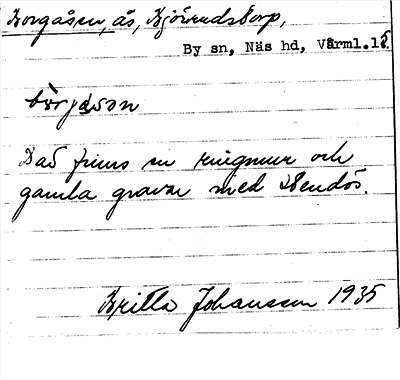 Borgåsen, ås, Björnudstorp,
By sn, Näs hd, Värml.l.
börjåsən
Där finns en ringmur och
gamla gravar med stendös.
Britta Johansson 1935